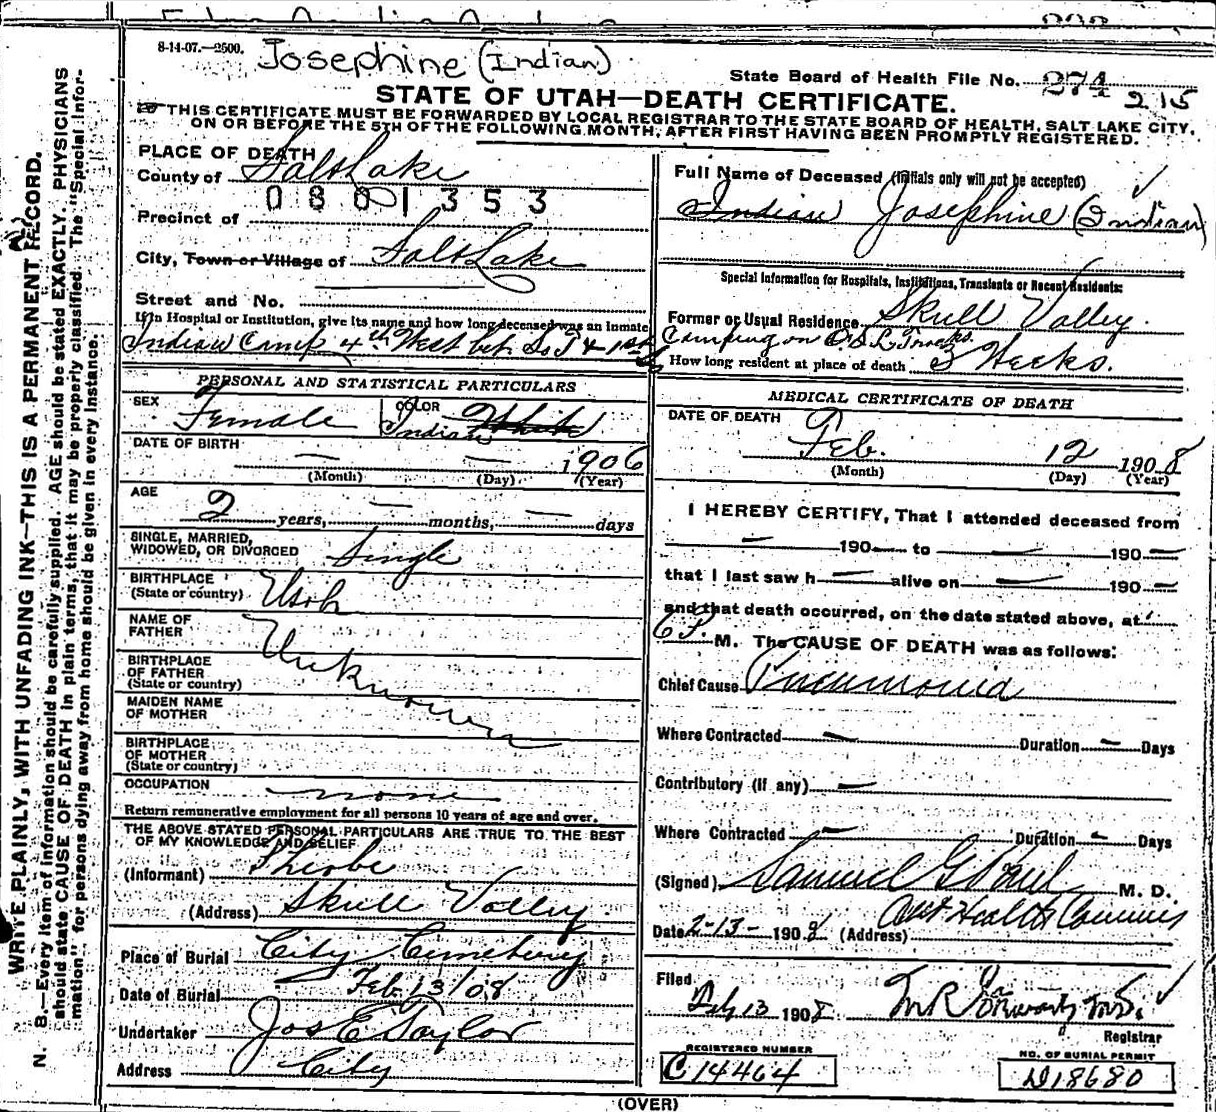 8-14-07.—2500.
Josephine (Indian)
State Board of Health File No. 274 215
STATE OF UTAH—DEATH CERTIFICATE.
THIS CERTIFICATE MUST BE FORWARDED BY LOCAL REGISTRAR TO THE STATE BOARD OF HEALTH, SALT LAKE CITY,
ON OR BEFORE THE 5TH OF THE FOLLOWING MONTH, AFTER FIRST HAVING BEEN PROMPTLY REGISTERED.
WRITE PLAINLY, WITH UNFADING INK—THIS IS A PERMANENT RECORD.
N. B.—Every item of information should be carefully supplied. AGE should be stated EXACTLY. PHYSICIANS
should state CAUSE OF DEATH in plain terms, that it may be properly classified. The "Special Infor-
mation" for persons dying away from home should be given in every instance.
PLACE OF DEATH
County of Salt Lake
080 1353
Precinct of
City, Town or Village of Salt Lake
Street and No.
If in Hospital or Institution, give its name and how long deceased was an Inmate
Indian Camp 4th West bet. So T & 1st
PERSONAL AND STATISTICAL PARTICULARS
SEX Female COLOR White Indian
DATE OF BIRTH — — 1906
(Month) (Day) (Year)
AGE 2 years, — months, — days
SINGLE, MARRIED,
WIDOWED, OR DIVORCED Single
BIRTHPLACE
(State or country) Utah
NAME OF
FATHER Unknown
BIRTHPLACE
OF FATHER
(State or country)
MAIDEN NAME
OF MOTHER
BIRTHPLACE
OF MOTHER
(State or country)
OCCUPATION none
Return remunerative employment for all persons 10 years of age and over.
THE ABOVE STATED PERSONAL PARTICULARS ARE TRUE TO THE BEST
OF MY KNOWLEDGE AND BELIEF
(Informant) Pheobe
(Address) Skull Valley
Place of Burial City Cemetery
Date of Burial Feb 13/08
Undertaker Jos E Taylor
Address City
Full Name of Deceased (Initials only will not be accepted)
Indian Josephine (Indian)
Special Information for Hospitals, Institutions, Transients or Recent Residents:
Former or Usual Residence Skull Valley.
Camping on O.S.L. Tracks.
How long resident at place of death 3 Weeks.
MEDICAL CERTIFICATE OF DEATH
DATE OF DEATH
Feb. 12 1908
(Month) (Day) (Year)
I HEREBY CERTIFY, That I attended deceased from
— 190— to — 190—
that I last saw h— alive on — 190—
and that death occurred, on the date stated above, at
6 P. M. The CAUSE OF DEATH was as follows:
Chief Cause Pneumonia
Where Contracted — Duration — Days
Contributory (if any) —
Where Contracted — Duration — Days
(Signed) Samuel G Paul M. D.
Date 2-13- 1908 (Address) Health Commis
Filed
Feb 13 1908 M.D.
Registrar
REGISTERED NUMBER
C 14464
NO. OF BURIAL PERMIT
D18680
(OVER)